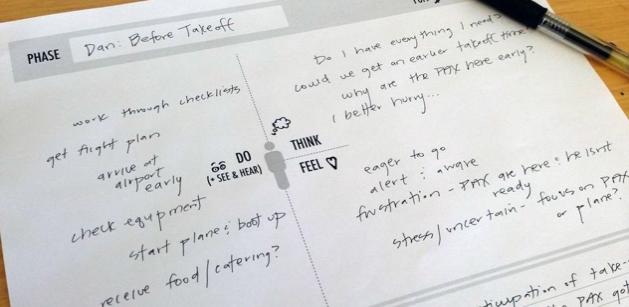 PHASE
Dan: Before Takeoff
work through checklists
get flight plan
arrive at
airport
early
check equipment
start plane & boot up
receive food/catering?
DO
(+ SEE & HEAR)
THINK
FEEL
Do I have everything I need?
could we get an earlier takeoff time?
why are the PAX here early?
I better hurry...
eager to go
alert & aware
frustration - PAX are here & he isn't
ready
stress/uncertain - focus on PAX
or plane?
of take-
the PAX got